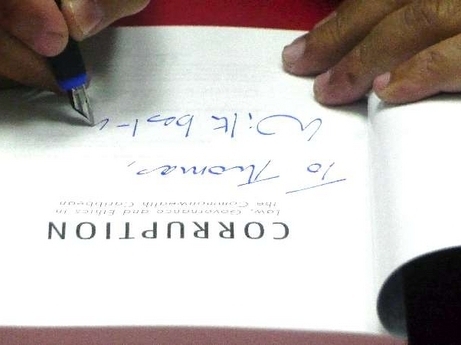 CORRUPTION
Law, Governance and Ethics in
the Commonwealth Caribbean
To Thomas,
With best